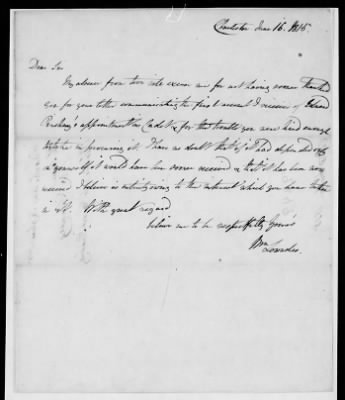 Charleston June 16. 1815.
Dear Sir
My absence from town will excuse me for not having sooner thanked
you for your letter communicating the first account I receive of Edward
appointment as Cadet & for the trouble you were kind enough
to take in procuring it. I have no doubt that if it had depended only
on yourself it would have been sooner received & that it has been now
received I believe is entirely owing to the interest which you have taken
in it. With great regard
believe me to be respectfully yours
Wm Lowndes